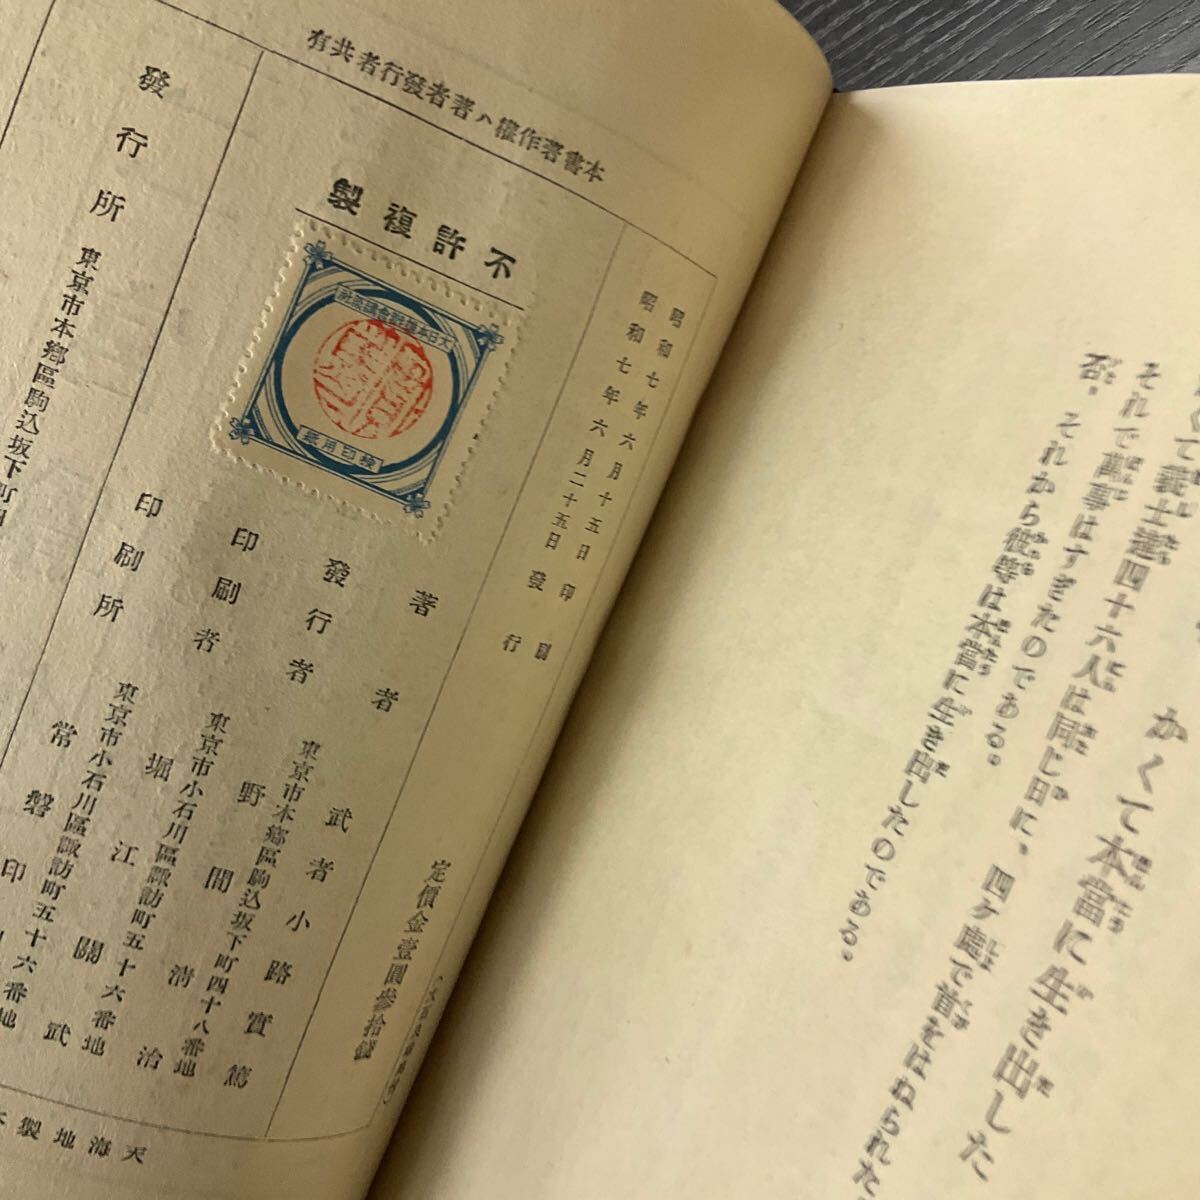 かくて本當に生き出した
て義士達四十六人は同じ日に、四ケ處で首をはねられた
それで萬事はすぎたのである。
否、それから彼等は本當に生き出したのである。
本書著作權ハ著者發行者共有
昭和七年六月十五日印刷
昭和七年六月二十五日發行
定價金壹圓參拾錢
不許複製
大日本雄辯會講談社
檢印用紙
著者 武者小路實篤
東京市本鄉區駒込坂下町四十八番地
發行者 野間清治
東京市小石川區諏訪町五十六番地
印刷者 堀江關武
東京市小石川區諏訪町五十六番地
印刷所 常磐印
發行所 東京市本鄉區駒込坂下町四
天海地製本